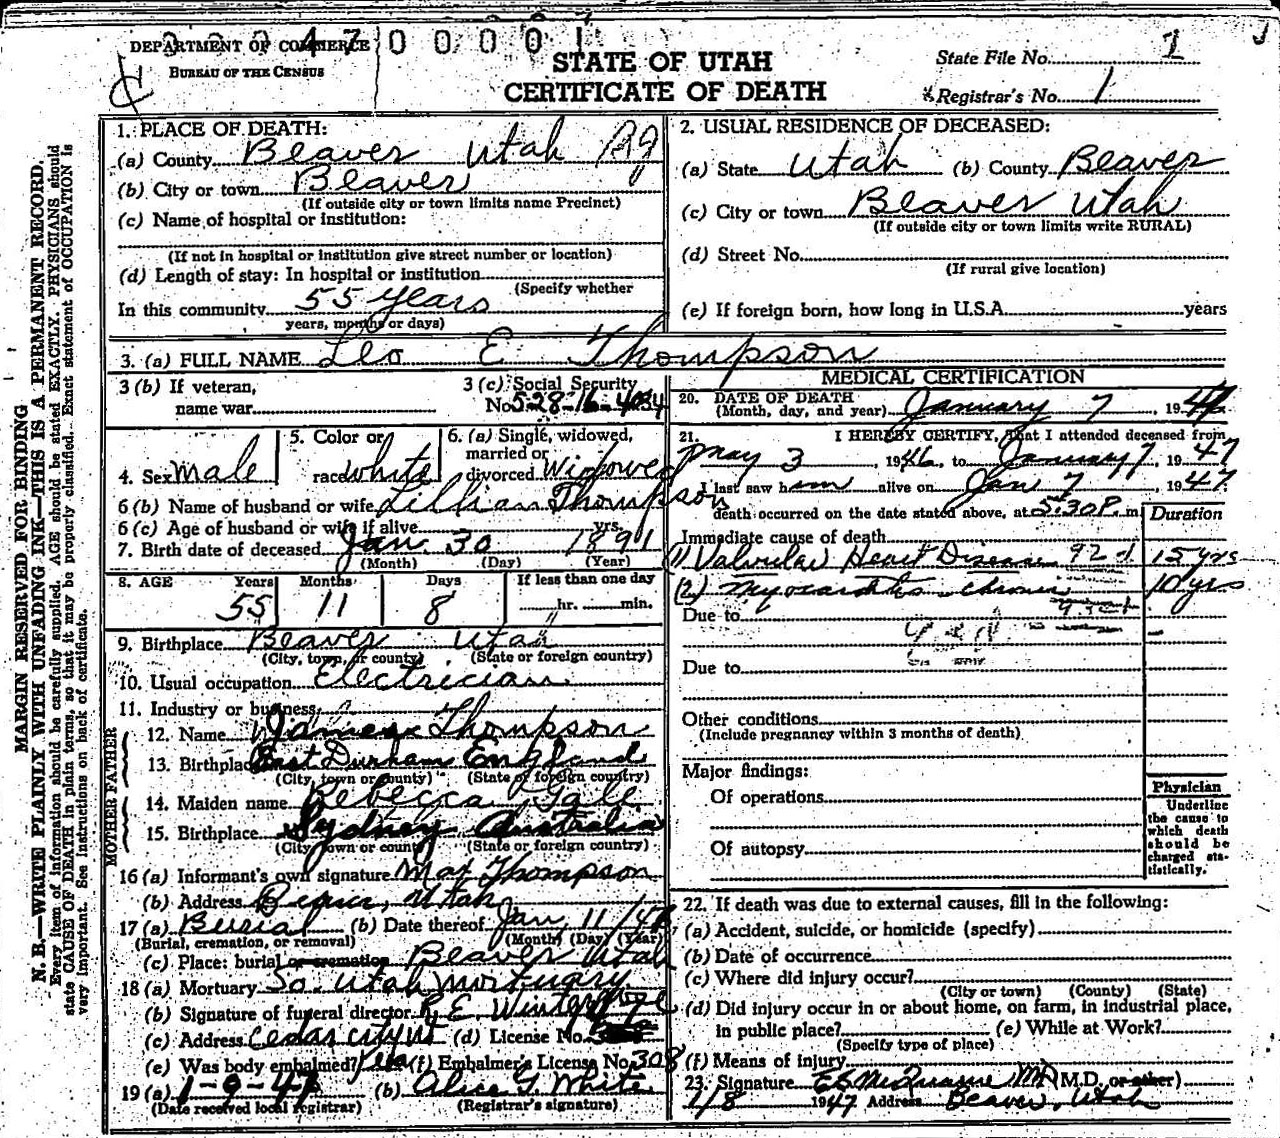 00047 00001
DEPARTMENT OF COMMERCE
BUREAU OF THE CENSUS
STATE OF UTAH
CERTIFICATE OF DEATH
State File No. 1
Registrar's No. 1
MARGIN RESERVED FOR BINDING
N. B.—WRITE PLAINLY WITH UNFADING INK—THIS IS A PERMANENT RECORD.
Every item of information should be carefully supplied. AGE should be stated EXACTLY. PHYSICIANS should
state CAUSE OF DEATH in plain terms, so that it may be properly classified. Exact statement of OCCUPATION is
very important. See instructions on back of certificate.
1. PLACE OF DEATH:
(a) County Beaver Utah
(b) City or town Beaver
(If outside city or town limits name Precinct)
(c) Name of hospital or institution:
(If not in hospital or institution give street number or location)
(d) Length of stay: In hospital or institution
(Specify whether
In this community 55 years
years, months or days)
2. USUAL RESIDENCE OF DECEASED:
(a) State Utah (b) County Beaver
(c) City or town Beaver Utah
(If outside city or town limits write RURAL)
(d) Street No.
(If rural give location)
(e) If foreign born, how long in U.S.A. years
3. (a) FULL NAME Leo E Thompson
3 (b) If veteran,
name war
3 (c) Social Security
No. 528-16-4034
4. Sex male
5. Color or
race white
6. (a) Single, widowed,
married or
divorced Widowed
6 (b) Name of husband or wife Lillian Thompson
6 (c) Age of husband or wife if alive yrs.
7. Birth date of deceased Jan. 30 1891
(Month) (Day) (Year)
8. AGE Years Months Days If less than one day
55 11 8 hr. min.
9. Birthplace Beaver Utah
(City, town, or county) (State or foreign country)
10. Usual occupation Electrician
11. Industry or business
FATHER
12. Name James Thompson
13. Birthplace East Durham England
(City, town or county) (State of foreign country)
MOTHER
14. Maiden name Rebecca Gale
15. Birthplace Sydney Australia
(City, town or county) (State or foreign country)
16 (a) Informant's own signature Max Thompson
(b) Address Beaver, Utah
17 (a) Burial (b) Date thereof Jan 11 1947
(Burial, cremation, or removal) (Month) (Day) (Year)
(c) Place: burial or cremation Beaver Utah
18 (a) Mortuary So. Utah Mortuary
(b) Signature of funeral director R. E. Winterrose
(c) Address Cedar City Ut (d) License No.
(e) Was body embalmed? Yes (f) Embalmer's License No. 308
19 (a) 1-9-47 (b) Alice G. White
(Date received local registrar) (Registrar's signature)
MEDICAL CERTIFICATION
20. DATE OF DEATH
(Month, day, and year) January 7, 1947
21. I HEREBY CERTIFY, that I attended deceased from
May 3, 1946, to January 7, 1947
I last saw him alive on Jan 7 1947
death occurred on the date stated above, at 5:30P. m.
Duration
Immediate cause of death
(1) Valvular Heart Disease 92d 15 yrs
(2) Myocarditis chronic 10 yrs
Due to
Due to
Other conditions
(Include pregnancy within 3 months of death)
Major findings:
Of operations
Of autopsy
Physician
Underline
the cause to
which death
should be
charged sta-
tistically.
22. If death was due to external causes, fill in the following:
(a) Accident, suicide, or homicide (specify)
(b) Date of occurrence
(c) Where did injury occur?
(City or town) (County) (State)
(d) Did injury occur in or about home, on farm, in industrial place,
in public place? (e) While at Work?
(Specify type of place)
(f) Means of injury
23. Signature M.D. (M.D. or other)
1/8 1947 Address Beaver, Utah